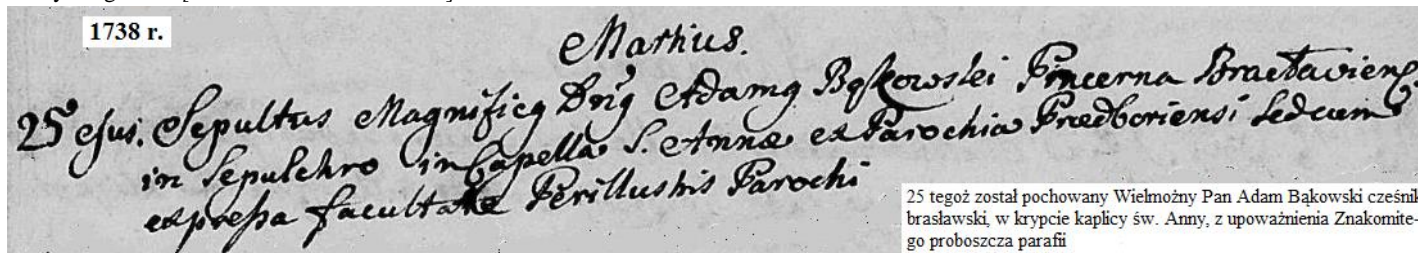 1738 r.
Martius.
25 ejus. Sepultus Magnificq Dnq Adamq Bąkowski Pincerna Bracłaviens
in Sepulchro in Capella S. Annæ ex Parochia Prædboriensi sed cum
expressa facultate Perillustris Parochi
25 tegoż został pochowany Wielmożny Pan Adam Bąkowski cześnik
brasławski, w krypcie kaplicy św. Anny, z upoważnienia Znakomite-
go proboszcza parafii